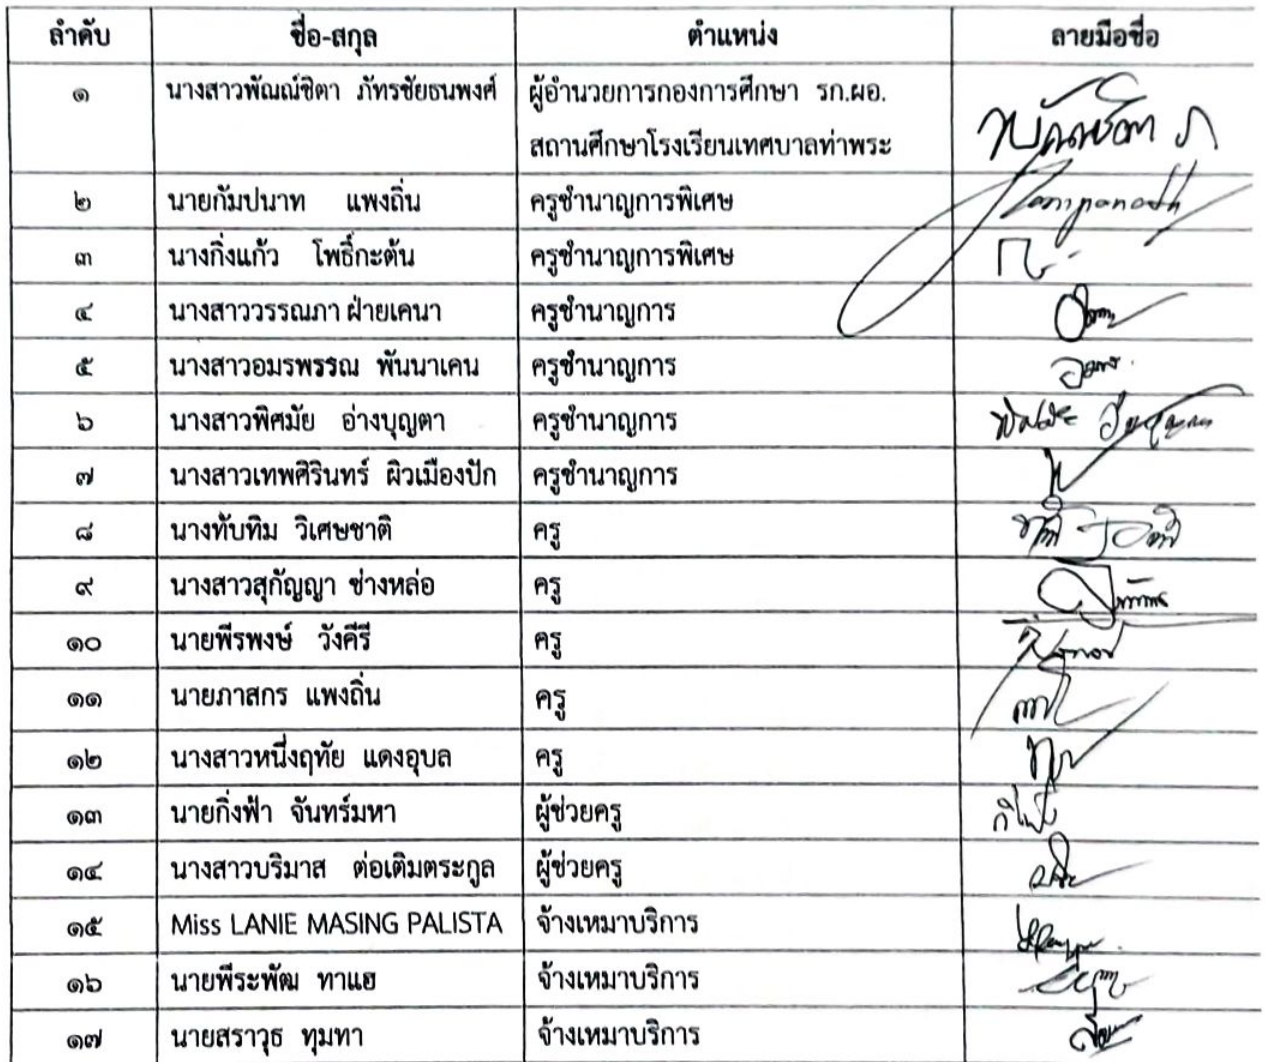 ลำดับ ชื่อ-สกุล ตำแหน่ง ลายมือชื่อ
๑ นางสาวพัฒณ์ชิตา ภัทรชัยธนพงศ์ ผู้อำนวยการกองการศึกษา รก.ผอ.
สถานศึกษาโรงเรียนเทศบาลท่าพระ
๒ นายกัมปนาท แพงถิ่น ครูชำนาญการพิเศษ Kampanath
๓ นางกิ่งแก้ว โพธิ์กะต้น ครูชำนาญการพิเศษ
๔ นางสาววรรณภา ฝ่ายเคนา ครูชำนาญการ
๕ นางสาวอมรพรรณ พันนาเคน ครูชำนาญการ
๖ นางสาวพิศมัย อ่างบุญตา ครูชำนาญการ
๗ นางสาวเทพศิรินทร์ ผิวเมืองปัก ครูชำนาญการ
๘ นางทับทิม วิเศษชาติ ครู
๙ นางสาวสุกัญญา ช่างหล่อ ครู
๑๐ นายพีรพงษ์ วังคีรี ครู
๑๑ นายภาสกร แพงถิ่น ครู
๑๒ นางสาวหนึ่งฤทัย แดงอุบล ครู
๑๓ นายกิ่งฟ้า จันทร์มหา ผู้ช่วยครู
๑๔ นางสาวบริมาส ต่อเติมตระกูล ผู้ช่วยครู
๑๕ Miss LANIE MASING PALISTA จ้างเหมาบริการ
๑๖ นายพีระพัฒ ทาแฮ จ้างเหมาบริการ
๑๗ นายสราวุธ ทุมทา จ้างเหมาบริการ